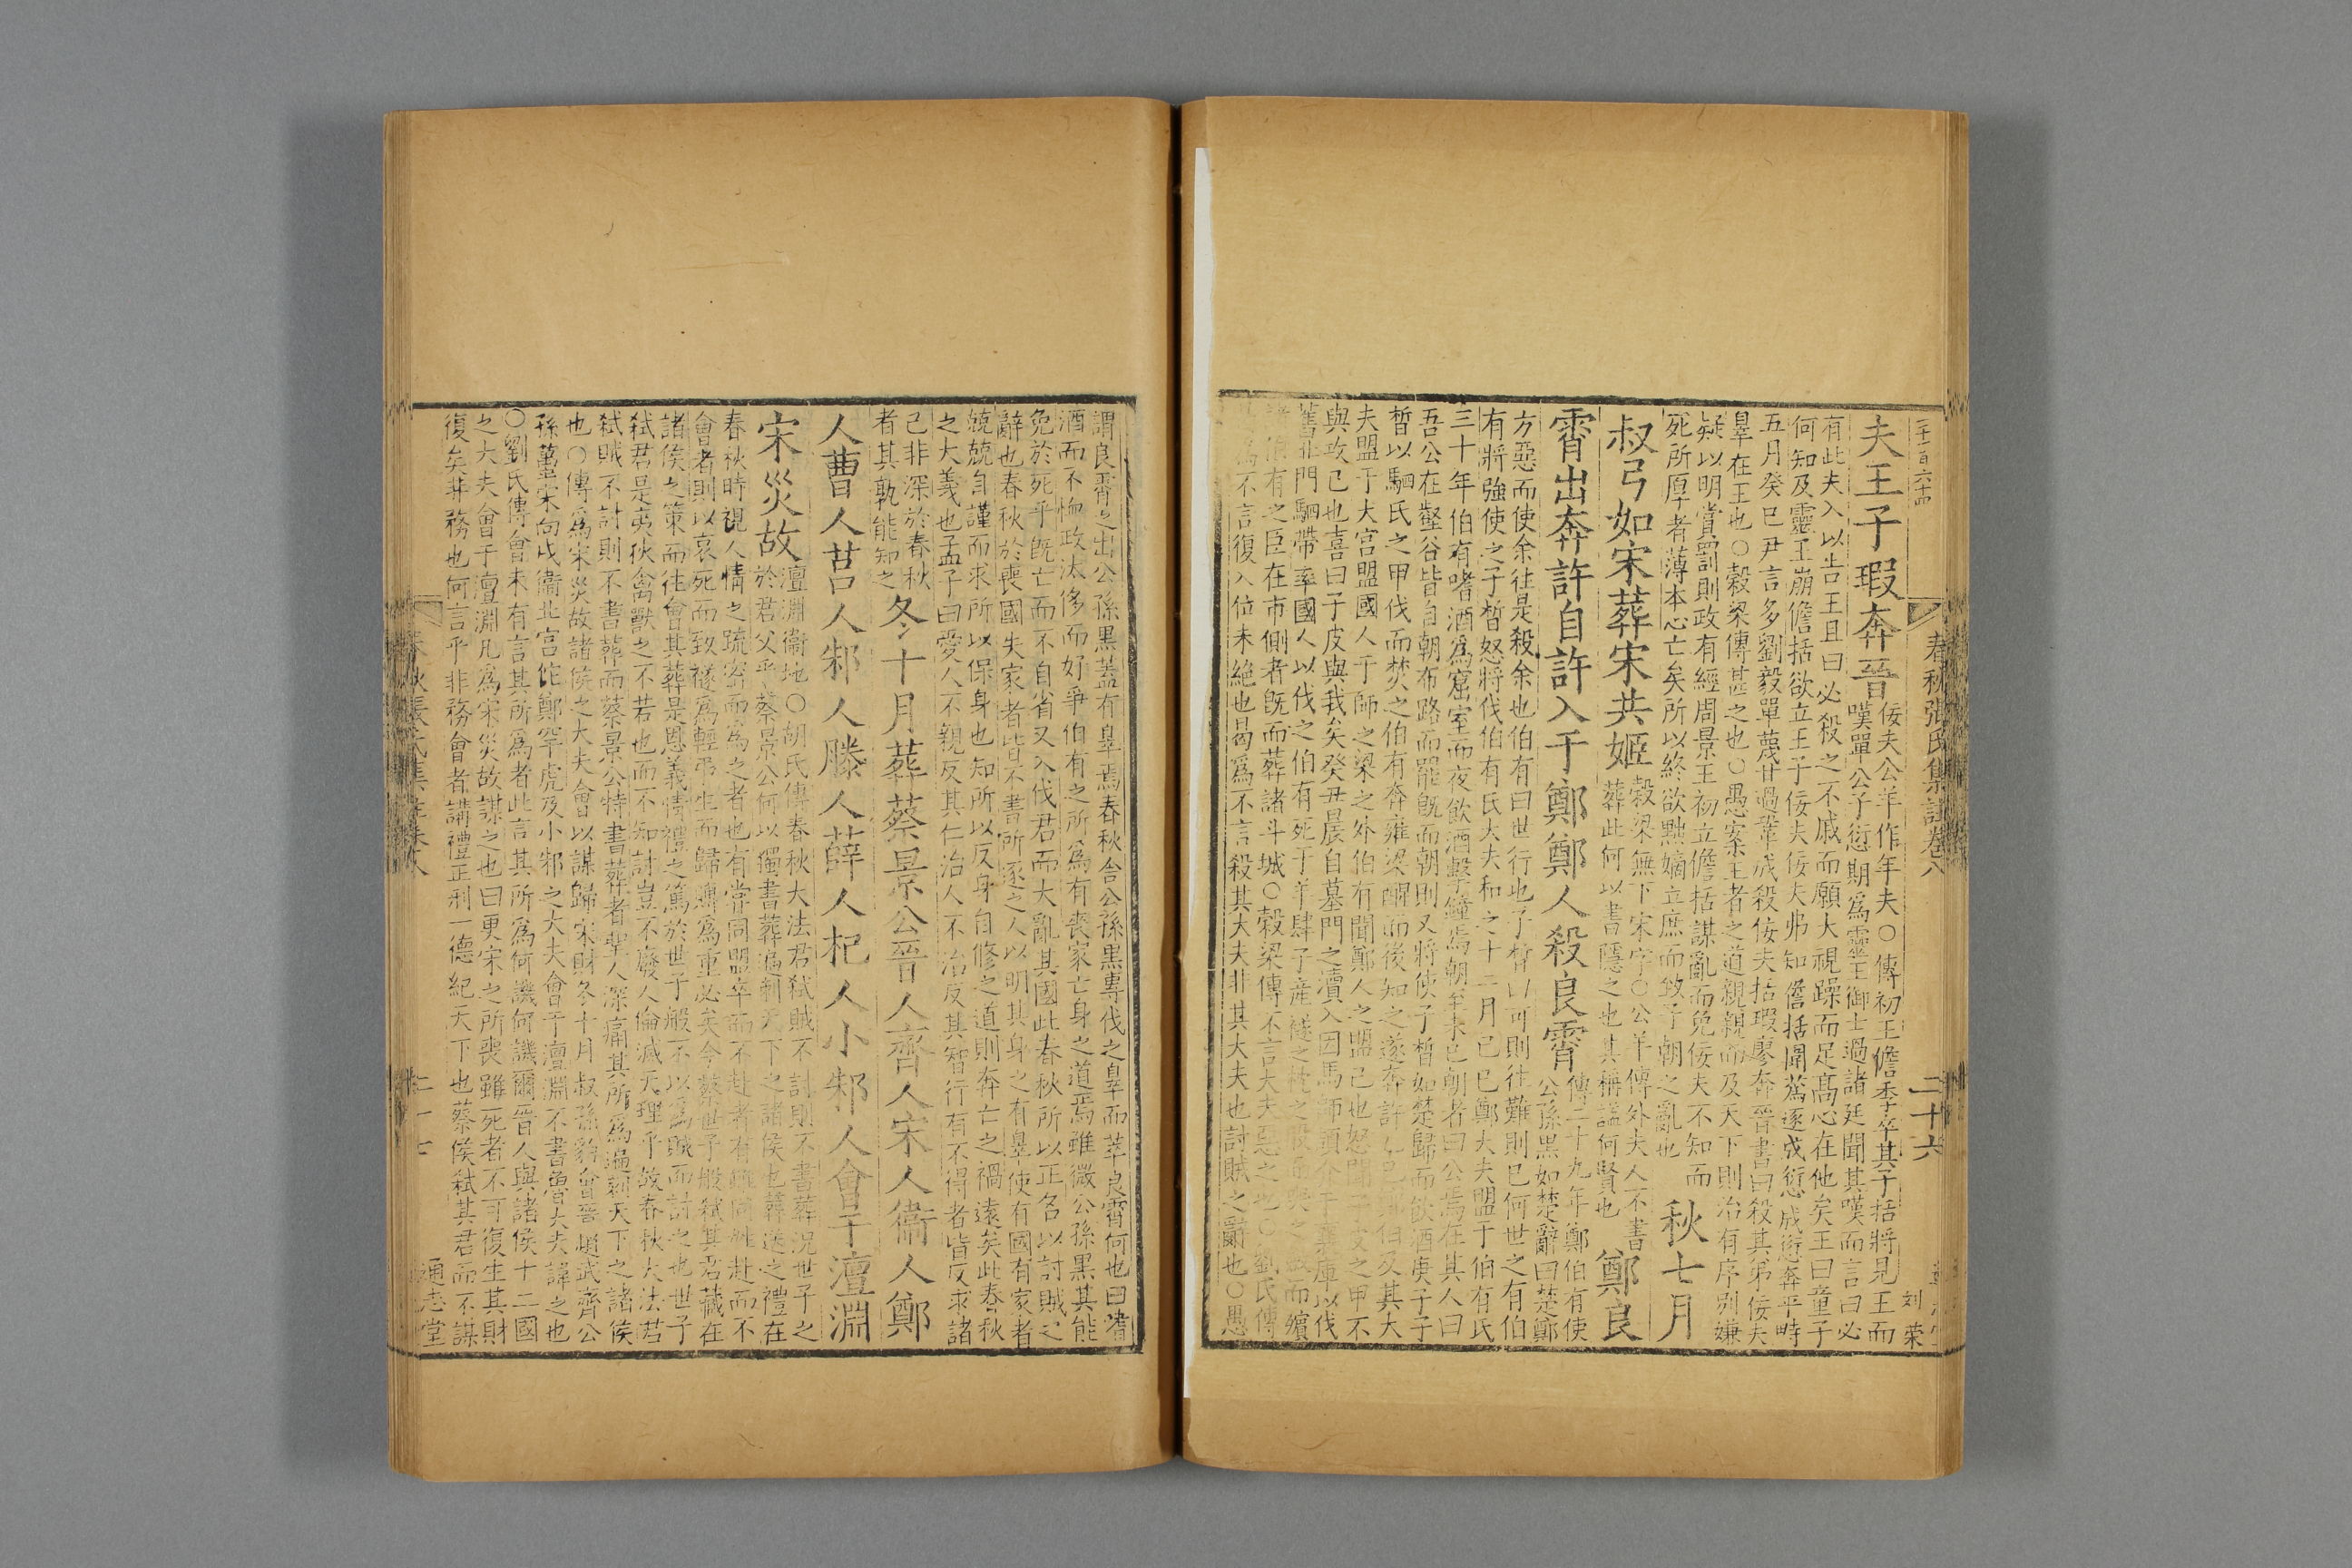 春秋張氏集註卷八
二十六
刘荣
夫王子瑕奔晉佞夫公羊作年夫○傳初王儋季卒其子括將見王而
嘆單公子愆期爲靈王御士過諸廷聞其嘆而言曰必
有此夫入以告王且曰必殺之不慼而願大視躁而足高心在他矣王曰童子
何知及靈王崩儋括欲立王子佞夫佞夫弗知儋括圍蒍逐成愆成愆奔平畤
五月癸巳尹言多劉毅單蔑甘過鞏成殺佞夫括瑕廖奔晉書曰殺其弟佞夫
辠在王也○榖梁傳甚之也○愚案王者之道親親而及天下則治有序别嫌
疑以明賞罰則政有經周景王初立儋括謀亂而免佞夫不知而
死所厚者薄本心亡矣所以終欲黜嫡立庶而致子朝之亂也
秋七月
叔弓如宋葬宋共姬榖梁無下宋字○公羊傳外夫人不書
葬此何以書隱之也其稱謚何賢也
鄭良
霄出奔許自許入于鄭鄭人殺良霄傳二十九年鄭伯有使
公孫黑如楚辭曰楚鄭
方惡而使余往是殺余也伯有曰世行也子晳曰可則往難則已何世之有伯
有將強使之子晳怒將伐伯有氏大夫和之十二月己巳鄭大夫盟于伯有氏
三十年伯有嗜酒爲窟室而夜飲酒擊鐘焉朝至未已朝者曰公焉在其人曰
吾公在壑谷皆自朝布路而罷旣而朝則又將使子晳如楚歸而飲酒庚子子
晳以駟氏之甲伐而焚之伯有奔雍梁醒而後知之遂奔許
夫盟于大宮盟國人于師之梁之外伯有聞鄭人之盟己也怒聞子皮之甲不
與攻己也喜曰子皮與我矣癸丑晨自墓門之瀆入因馬師頡介于襄庫以伐
舊北門駟帶率國人以伐之伯有死于羊肆子産襚之枕之股而哭之歛而殯
諸伯有之臣在市側者旣而葬諸斗城○榖梁傳不言大夫惡之也○劉氏傳
爲不言復入位未絶也曷爲不言殺其大夫非其大夫也討賊之辭也○愚
謂良霄之出公孫黑蓋有辠焉春秋舍公孫黑專伐之辠而萃良霄何也曰嗜
酒而不恤政汰侈而好爭伯有之所爲有喪家亡身之道焉雖微公孫黑其能
免於死乎旣亡而不自省又入伐君而大亂其國此春秋所以正名以討賊之
辭也春秋於喪國失家者皆不書所逐之人以明其身之有辠使有國有家者
兢兢自謹而求所以保身也知所以反身自修之道則奔亡之禍遠矣此春秋
之大義也孟子曰愛人不親反其仁治人不治反其智行有不得者皆反求諸
己非深於春秋
者其孰能知之
冬十月葬蔡景公晉人齊人宋人衞人鄭
人曹人莒人邾人滕人薛人杞人小邾人會于澶淵
宋災故澶淵衞地○胡氏傳春秋大法君弑賊不討則不書葬況世子之
於君父乎蔡景公何以獨書葬遍刺天下之諸侯也葬送之禮在
春秋時視人情之疏密而爲之者也有嘗同盟卒而不赴者有雖同姓赴而不
會者則以哀死而致襚爲輕弔生而歸賵爲重必矣今蔡世子般弑其君藏在
諸侯之策而往會其葬是恩義情禮之篤於世子般不以爲賊而討之也世子
弑君是夷狄禽獸之不若也而不知討豈不廢人倫滅天理乎故春秋大法君
弑賊不討則不書葬而蔡景公特書葬者聖人深痛其所爲遍刺天下之諸侯
也○傳爲宋災故諸侯之大夫會以謀歸宋財冬十月叔孫豹會晉趙武齊公
孫蠆宋向戌衞北宮佗鄭罕虎及小邾之大夫會于澶淵不書魯大夫諱之也
○劉氏傳會未有言其所爲者此言其所爲何譏何譏爾晉人與諸侯十二國
之大夫會于澶淵凡爲宋災故謀之也曰更宋之所喪雖死者不可復生其財
復矣非務也何言乎非務會者講禮正刑一德紀天下也蔡侯弑其君而不謀
通志堂